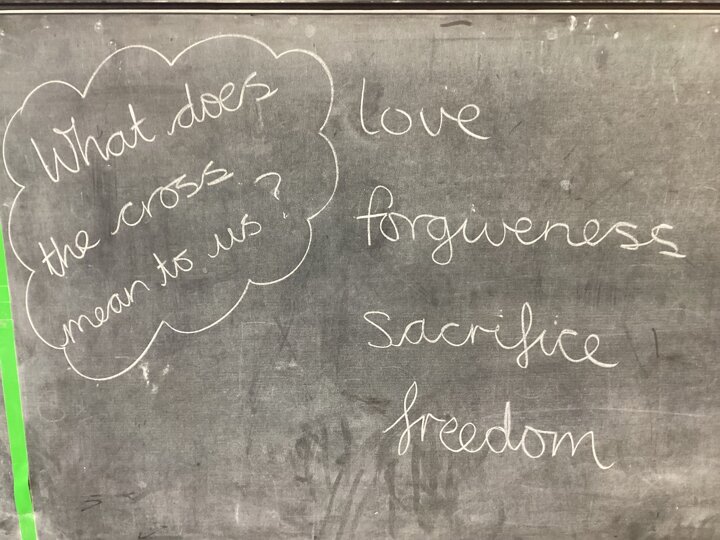 What does
the cross
mean to us?
love
forgiveness
sacrifice
freedom